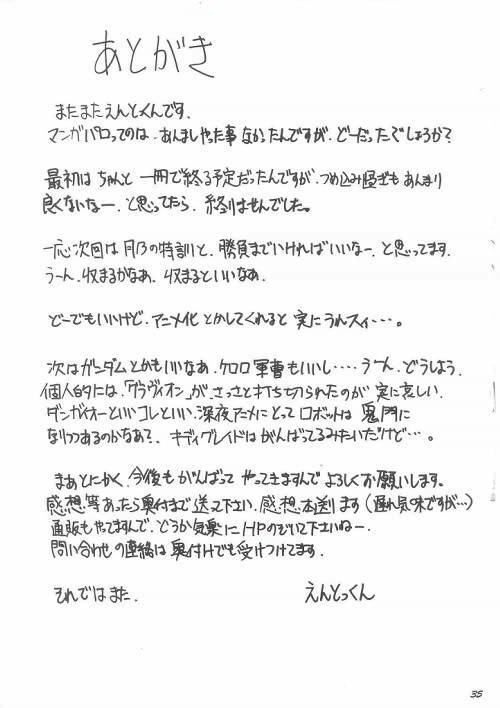 あとがき
またまたえんとっくんです、
マンガパロってのは、あんましやった事なかったんですが、どーだったでしょうか?
最初はちゃんと一冊で終る予定だったんですが、つめ込み過ぎもあんまり
良くないなー、と思ってたら、終りませんでした。
一応次回は月乃の特訓と、勝負までいければいいなー、と思ってます。
うーん、収まるかなあ、収まるといいなあ、
どーでもいいけど、アニメ化とかしてくれると実にうれスィ・・・・。
次はガンダムとかもいいなあ、ケロロ軍曹もいいし・・・・うーん、どうしよう、
個人的には、「グラヴィオン」が、さっさと打ち切られたのが実に哀しい、
ダンガイオーといいコレといい、深夜アニメにとってロボットは鬼門に
なりつつあるのかなあ?、キディグレイドはがんばってるみたいだけど・・・。
まあとにかく、今後もがんばってやってきますんでよろしくお願いします。
感想等あったら奥付まで送って下さい、感想本送ります(遅れ気味ですが…)
通販もやてますんで、どうか気楽にHPのぞいて下さいねー、
問い合わせの連絡は奥付けでも受けつけてます。
それではまた、
えんとっくん
35